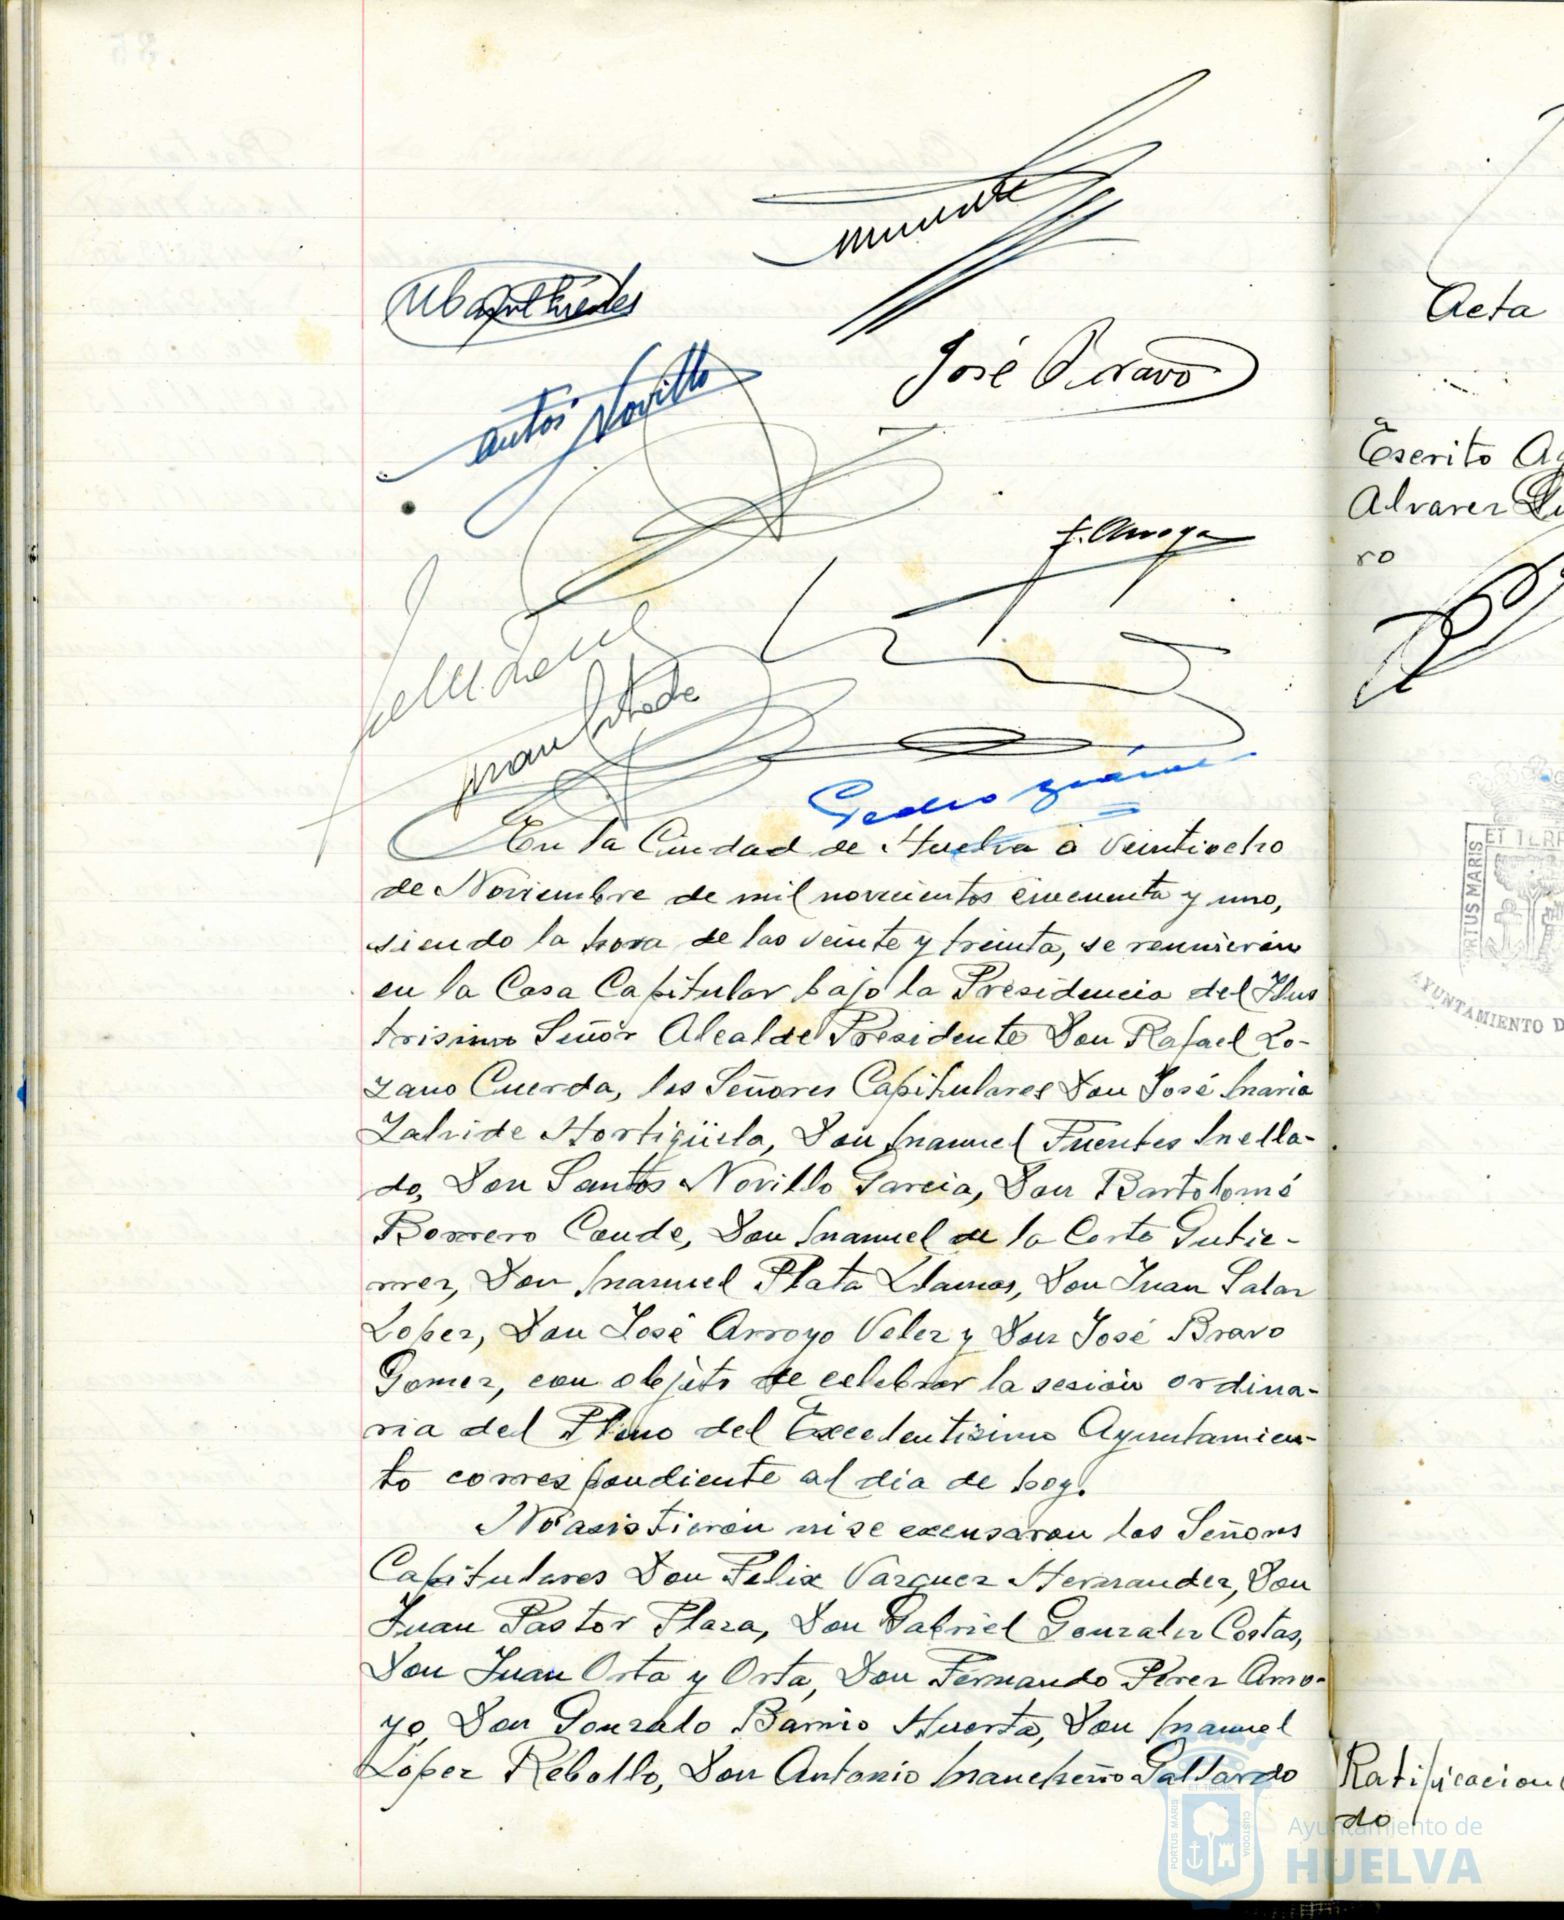 José Bravo
J. Arroyo
En la Ciudad de Huelva a veintiocho
de Noviembre de mil novecientos cincuenta y uno,
siendo la hora de las veinte y treinta, se reunieron
en la Casa Capitular bajo la Presidencia del Ilus
trisimo Señor Alcalde Presidente Don Rafael Lo-
zano Cuerda, los Señores Capitulares Don José Maria
Zalvide Hortigüela, Don Manuel Fuentes Mella-
do, Don Santos Novillo Garcia, Don Bartolomé
Borrero Conde, Don Manuel de la Corte Gutie-
rrez, Don Manuel Plata Llamas, Don Juan Salar
Lopez, Don José Arroyo Velez y Don José Bravo
Gomez, con objeto de celebrar la sesión ordina-
ria del Pleno del Excelentisimo Ayuntamien-
to correspondiente al dia de hoy.
No asistieron ni se excusaron los Señores
Capitulares Don Felix Vazquez Hernandez, Don
Juan Pastor Plaza, Don Gabriel Gonzalez Costas,
Don Juan Orta y Orta, Don Fernando Perez Arro-
yo, Don Gonzalo Barrio Huerta, Don Manuel
Lopez Rebollo, Don Antonio Mancheño Gallardo
Acta
Escrito
Alvarez
ro
ET TERR
PORTUS MARIS
AYUNTAMIENTO D
Ratificacion
do
PORTUS MARIS
ET TERRAE
CUSTODIA
Ayuntamiento de
HUELVA